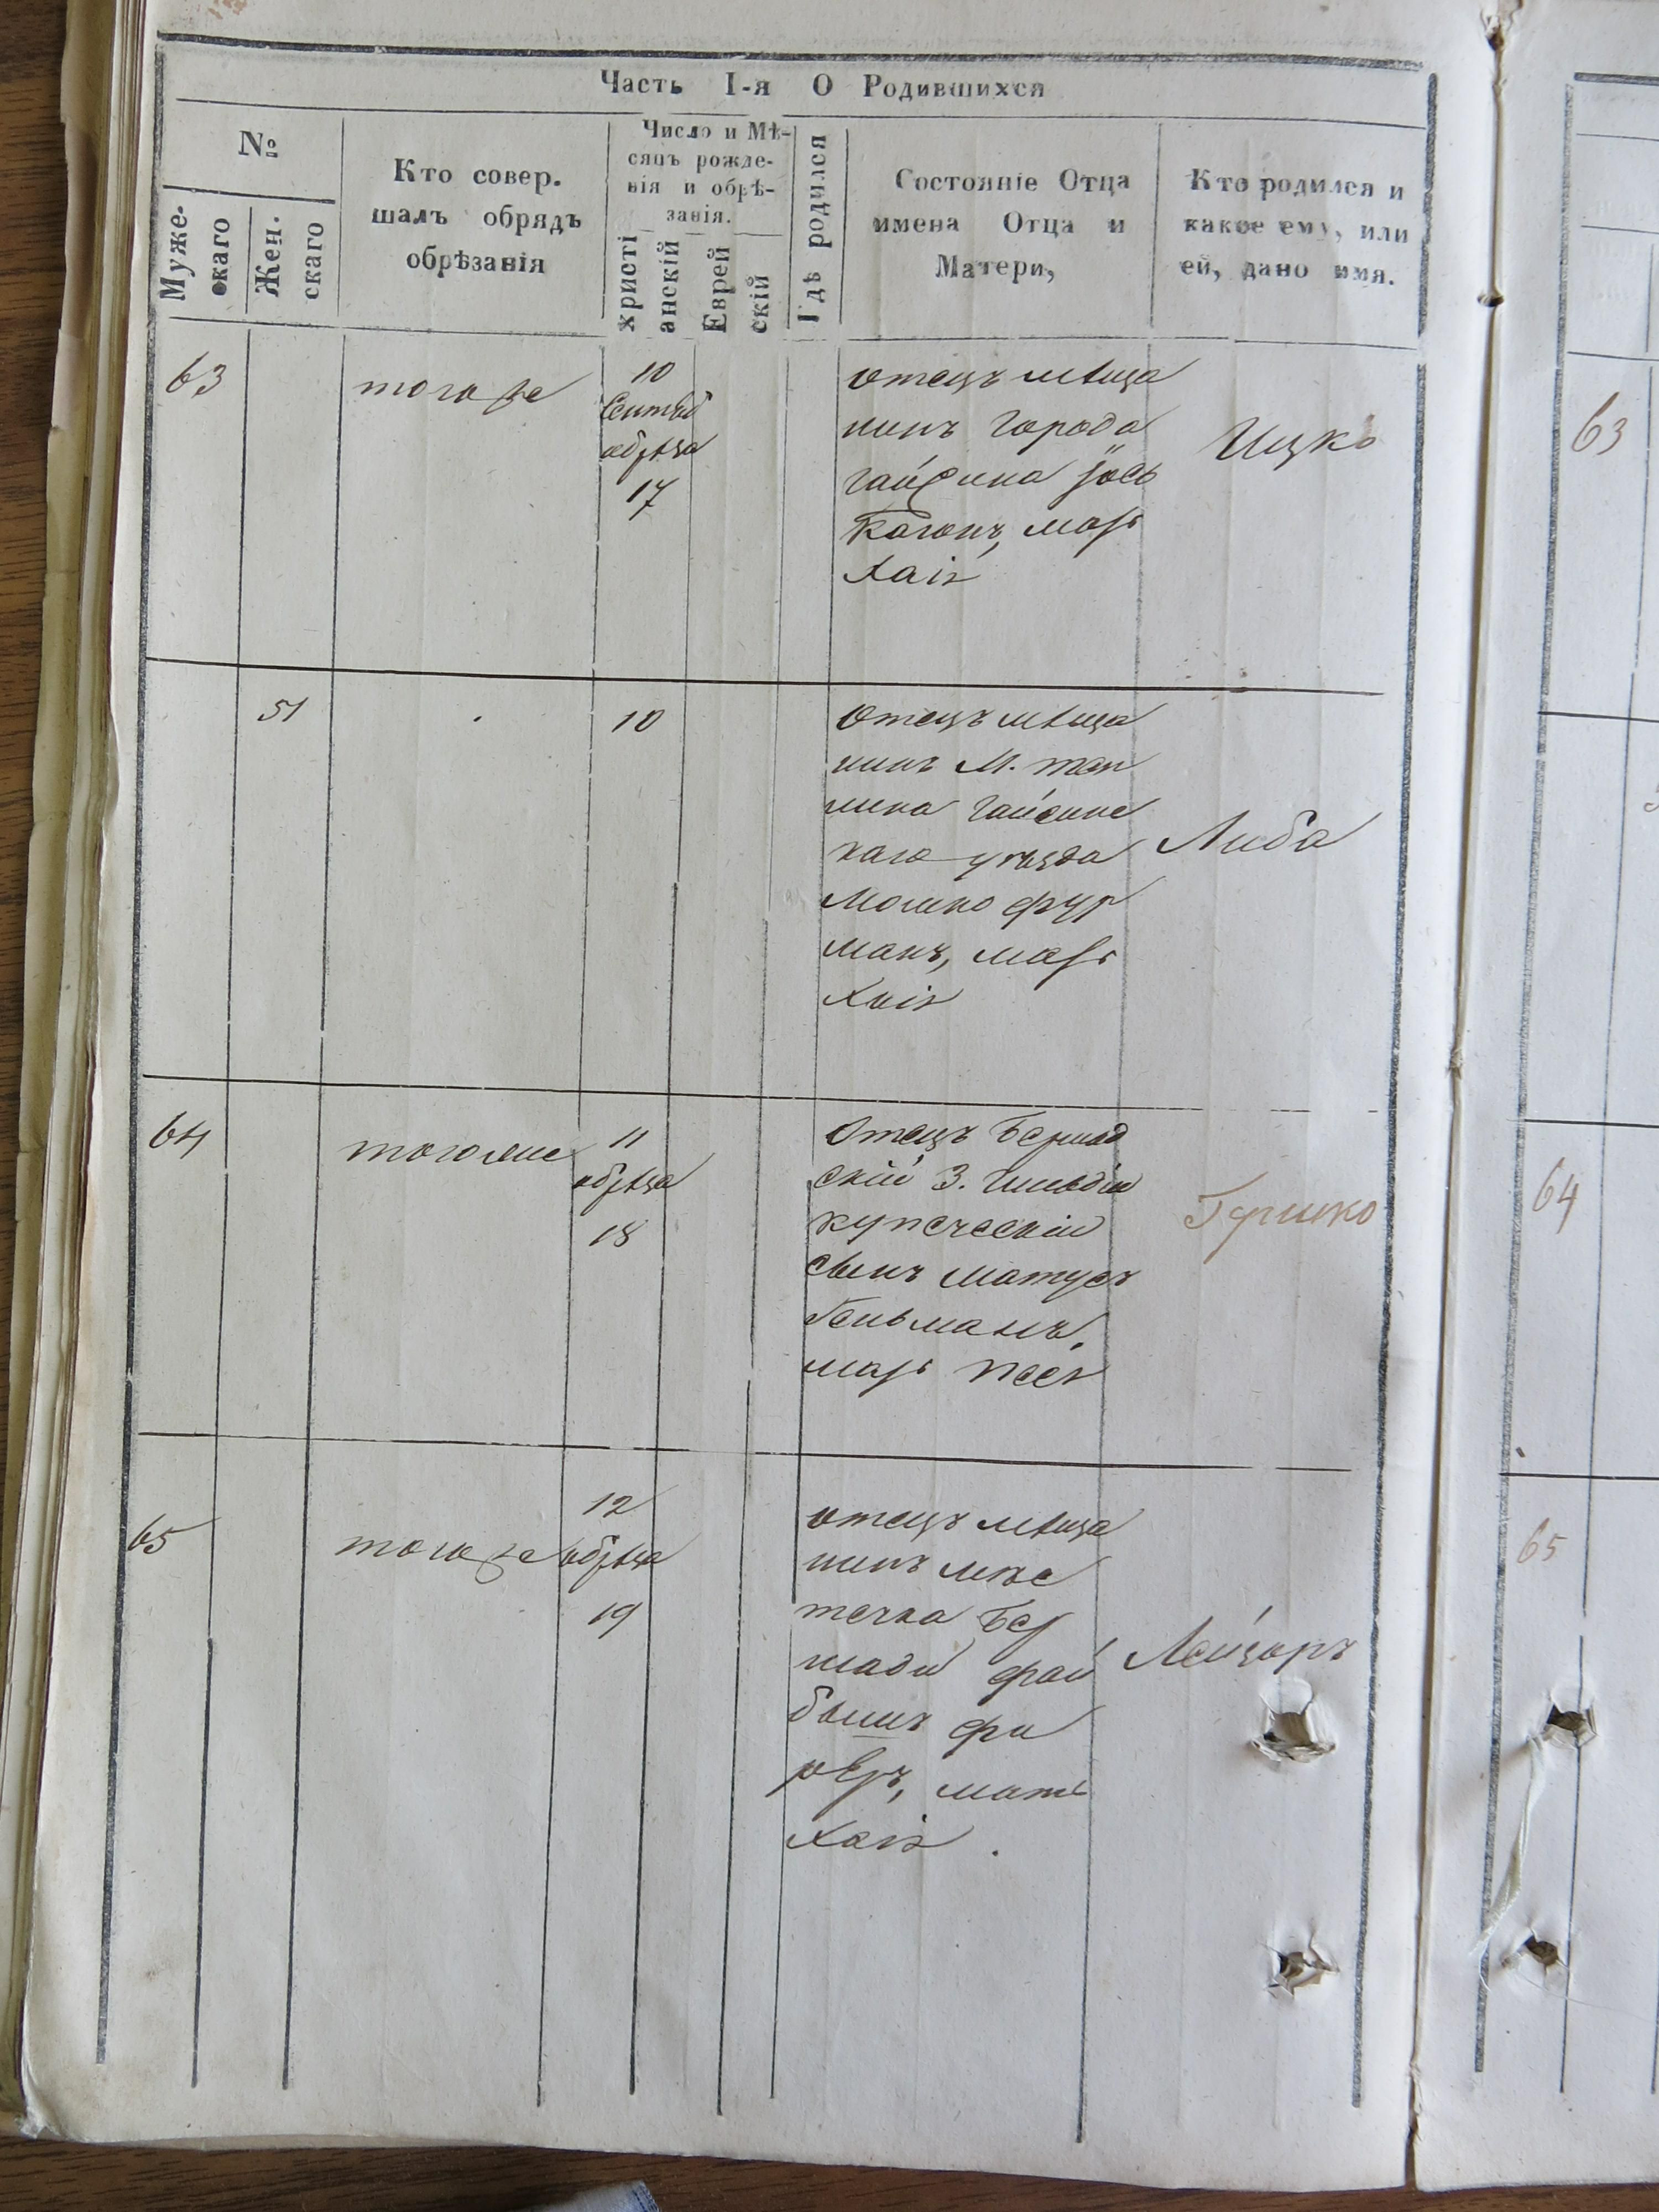 Часть I-я О Родившихся
№
Муже-
скаго
Жен.
скаго
Кто совер.
шалъ обрядъ
обрѣзанія
Число и Мѣ-
сяцъ рожде-
нія и обрѣ-
занія.
христі
анскій
Еврей
скій
Гдѣ родился
Состояніе Отца
имена Отца и
Матери,
Кто родился и
какое ему, или
ей, дано имя.
63
тогоже
10
обрѣза
17
отецъ мѣща
нинъ города
гайсина Іось
Каганъ, мать
Хаія
Ицко
51
10
Отецъ мѣща
нинъ М. теп
лика гайсинс
каго уѣзда
Мошко фур
манъ, мать
Хаія
Либа
64
тогоже
11
обрѣза
18
Отецъ Бершад
скій 3. гильдіи
купеческій
сынъ Матусъ
Гельманъ,
мать
Гершко
65
тогоже
12
обрѣза
19
отецъ мѣща
нинъ мѣс
течка Бер
шади фай
бышъ
мать
Хаія.
Лейзоръ
63
64
65